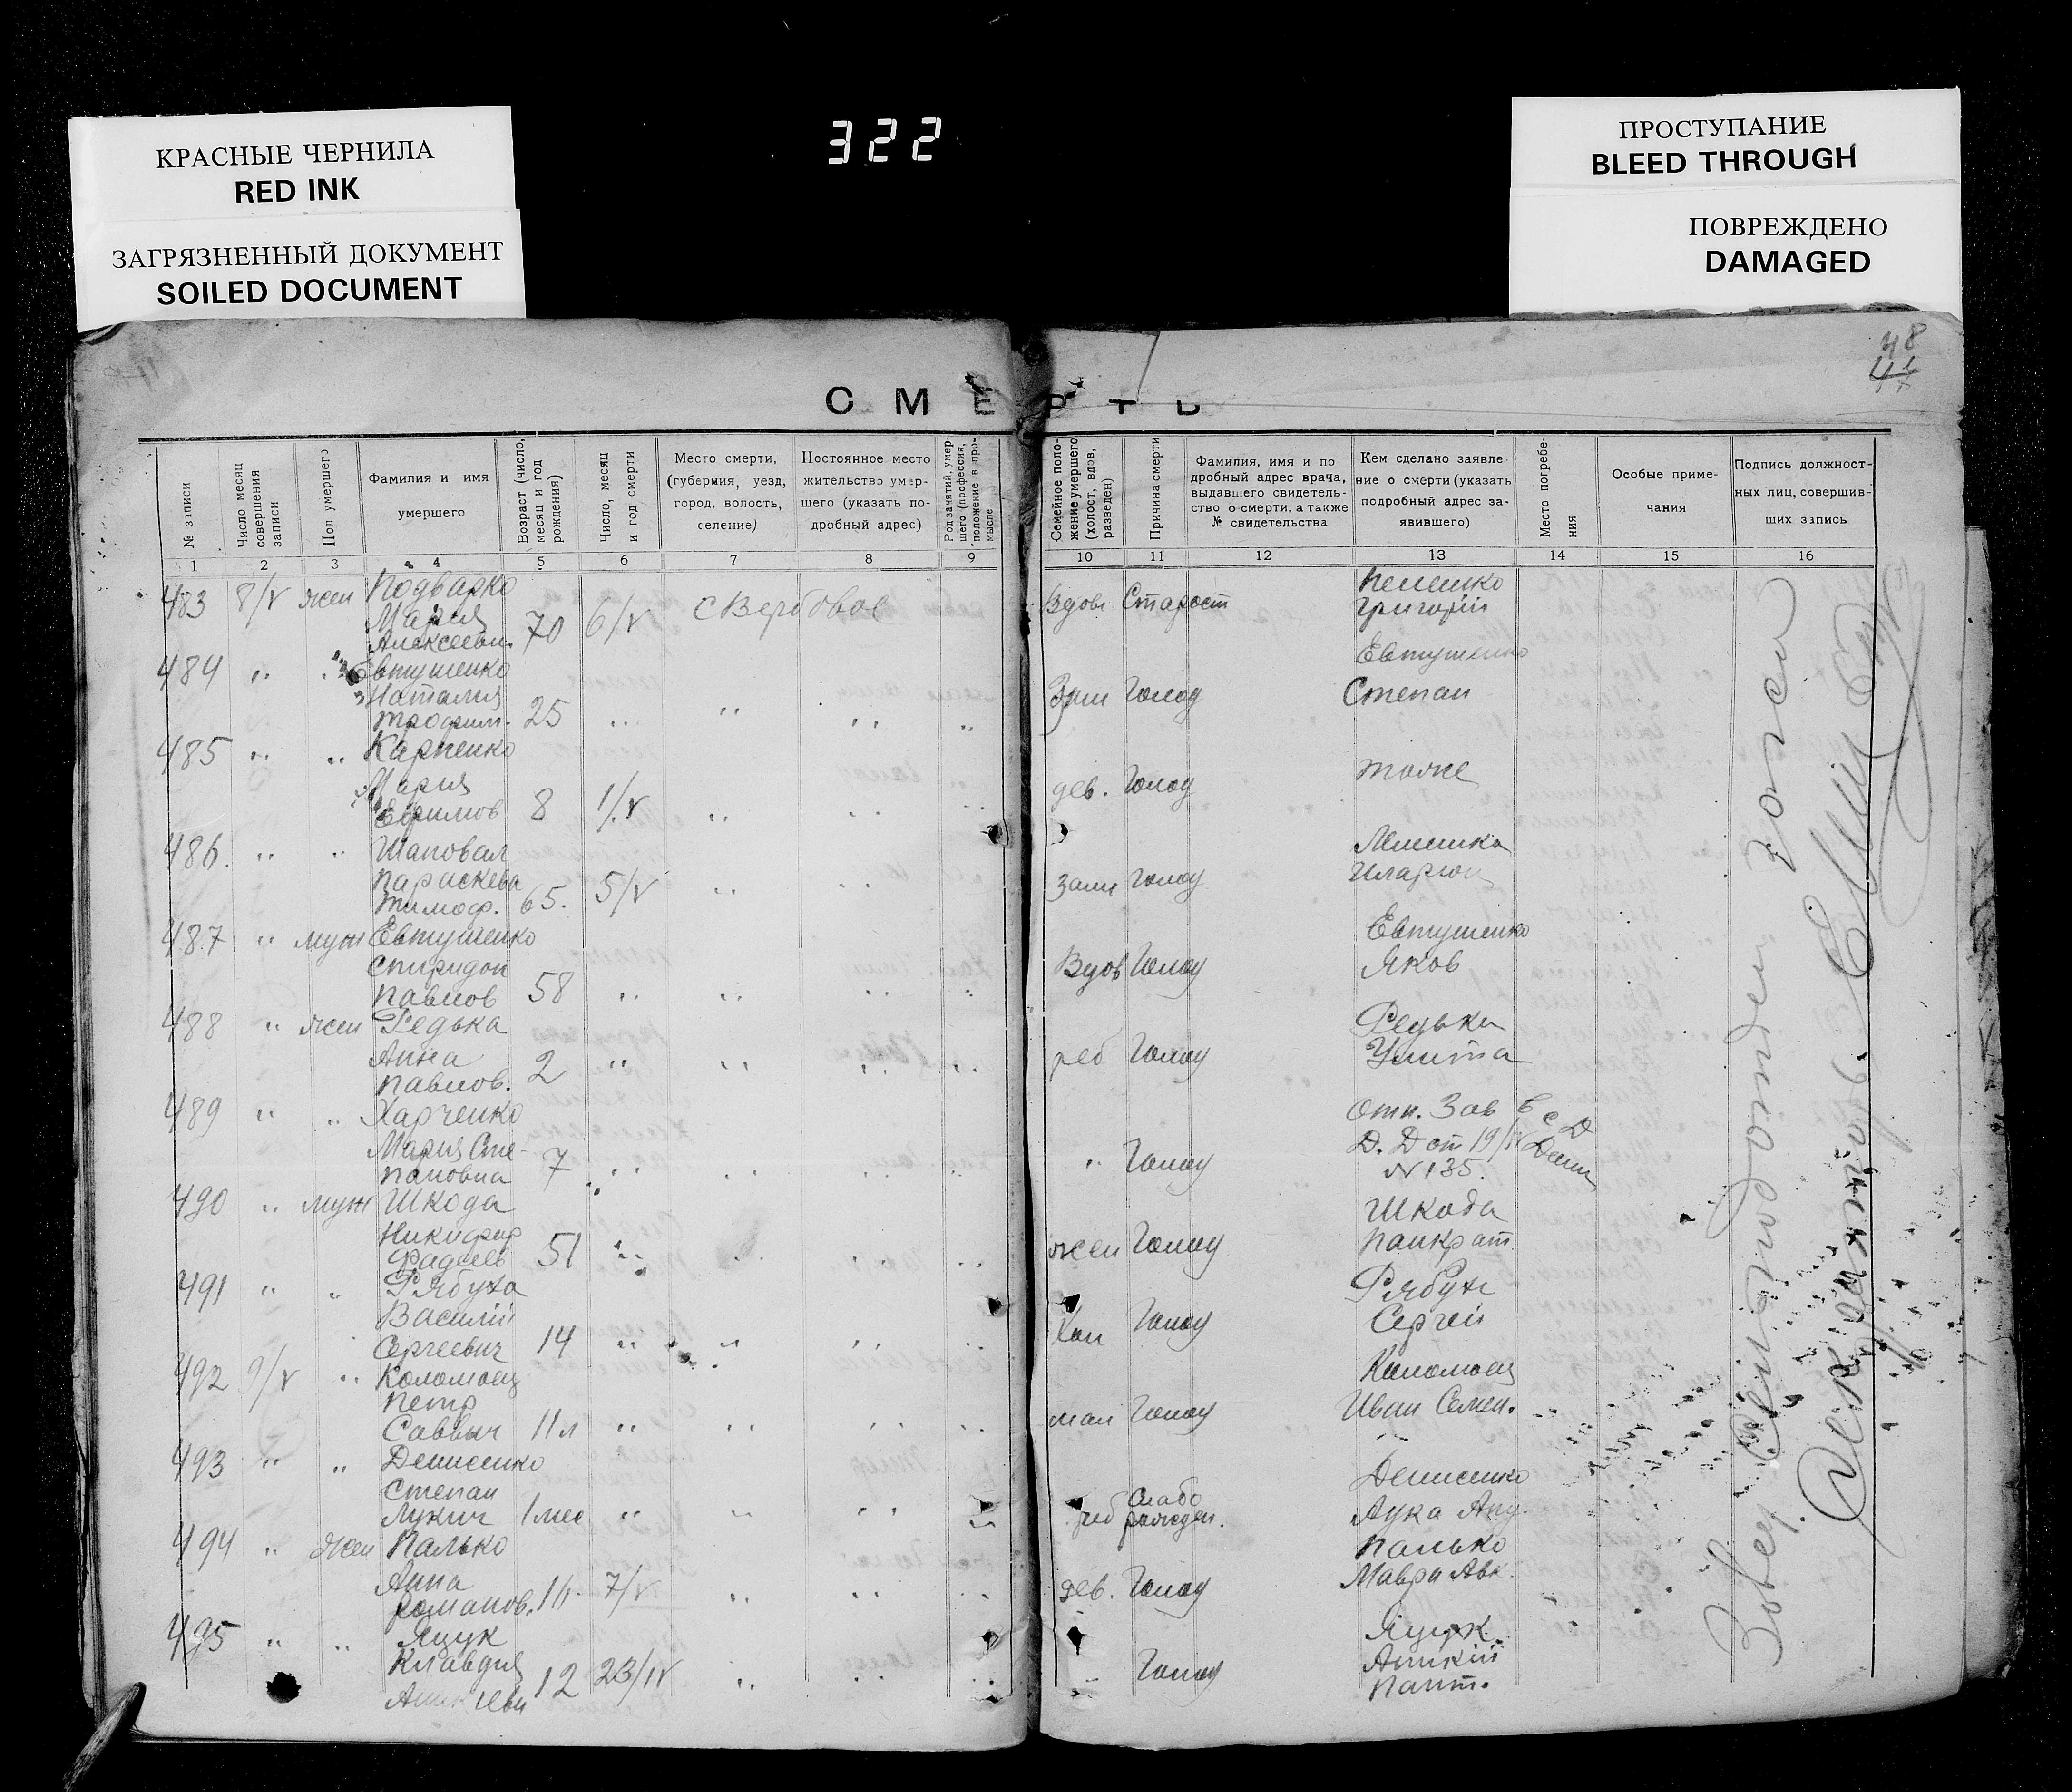 КРАСНЫЕ ЧЕРНИЛА
RED INK
ЗАГРЯЗНЕННЫЙ ДОКУМЕНТ
SOILED DOCUMENT
322
ПРОСТУПАНИЕ
BLEED THROUGH
ПОВРЕЖДЕНО
DAMAGED
48
СМЕРТЬ
№ записи
Число месяц совершения записи
Пол умершего
Фамилия и имя
умершего
Возраст (число, месяц и год рождения)
Число, месяц и год смерти
Место смерти,
(губерния, уезд,
город, волость,
селение)
Постоянное место
жительство умер-
шего (указать по-
дробный адрес)
Род занятий, умер-
шего (профессия,
положение в про-
мысле
Семейное поло-
жение умершего
(холост, вдов,
разведен)
Причина смерти
Фамилия, имя и по
дробный адрес врача,
выдавшего свидетель-
ство о смерти, а также
№ свидетельства
Кем сделано заявле
ние о смерти (указать
подробный адрес за-
явившего)
Место погребе-
ния
Особые приме-
чания
Подпись должност-
ных лиц, совершив-
ших запись
1 2 3 4 5 6 7 8 9 10 11 12 13 14 15 16
483 8/V жен Подварко
Мария
Алексеевн. 70 6/V с Вербовое Вдов Старост
Григорій
484 " " Евтушенко
Наталия
Трофим. 25 " " " " Зам Голод
Евтушенко
Степан
485 " " Карпенко
Мария
Ефимов 8 1/V " " " дев. Голод
тоже
486. " " Шаповал
Параскева
Тимоф. 65. 5/V " " зам Голод
Иларион
487 " муж Евтушенко
Спиридон
Павлов 58 " " " " Вдов Голод
Евтушенко
Яков
488 " жен Редька
Анна
Павлов. 2 " " " " реб Голод
Редька
Улита
489 " " Харченко
Мария Сте-
пановна 7 " " " " " Голод
Отн. Зав
Д. Д от 19/
N 135.
490 " муж Шкода
Никифор
Фадеев 51 " " " " жен Голод
Шкода
Панкрат
491 " " Рябуха
Василій
Сергеевич 14 " " " Хол Голод
Рябух
Сергей
492 9/V " Коломоец
Петр
Саввич 11 л " " " " мал Голод
Коломоец
Иван Семен.
493 " " Денисенко
Степан
Лукич 1 мес " " " " реб Слабо
рожден.
Денисенко
Лука
494 " жен Палько
Анна
Романов. 7/V " " " дев. Голод
Палько
Мавра
495 " " Яцук
Клавдия
12 23/IV " " " Голод
Яцук
Пант.